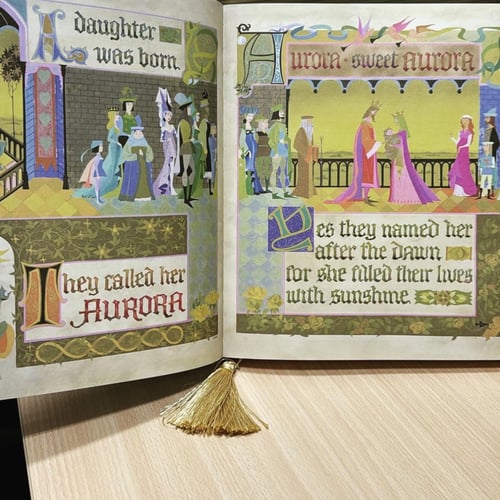 A daughter
was born.
They called her
AURORA
Aurora · sweet aurora
Yes they named her
after the dawn
for she filled their lives
with sunshine.